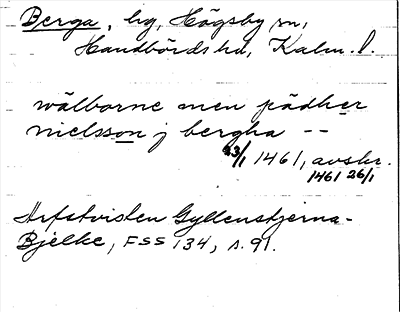 Berga, by, Högsby sn,
Handbörds hd, Kalm. l.
wälborne men pädher
nielsson j bergha --
23/1 1461, avskr.
1461 26/1
Arfstvisten Gyllenstjerna-
Bjelke, FSS 134, s. 91.